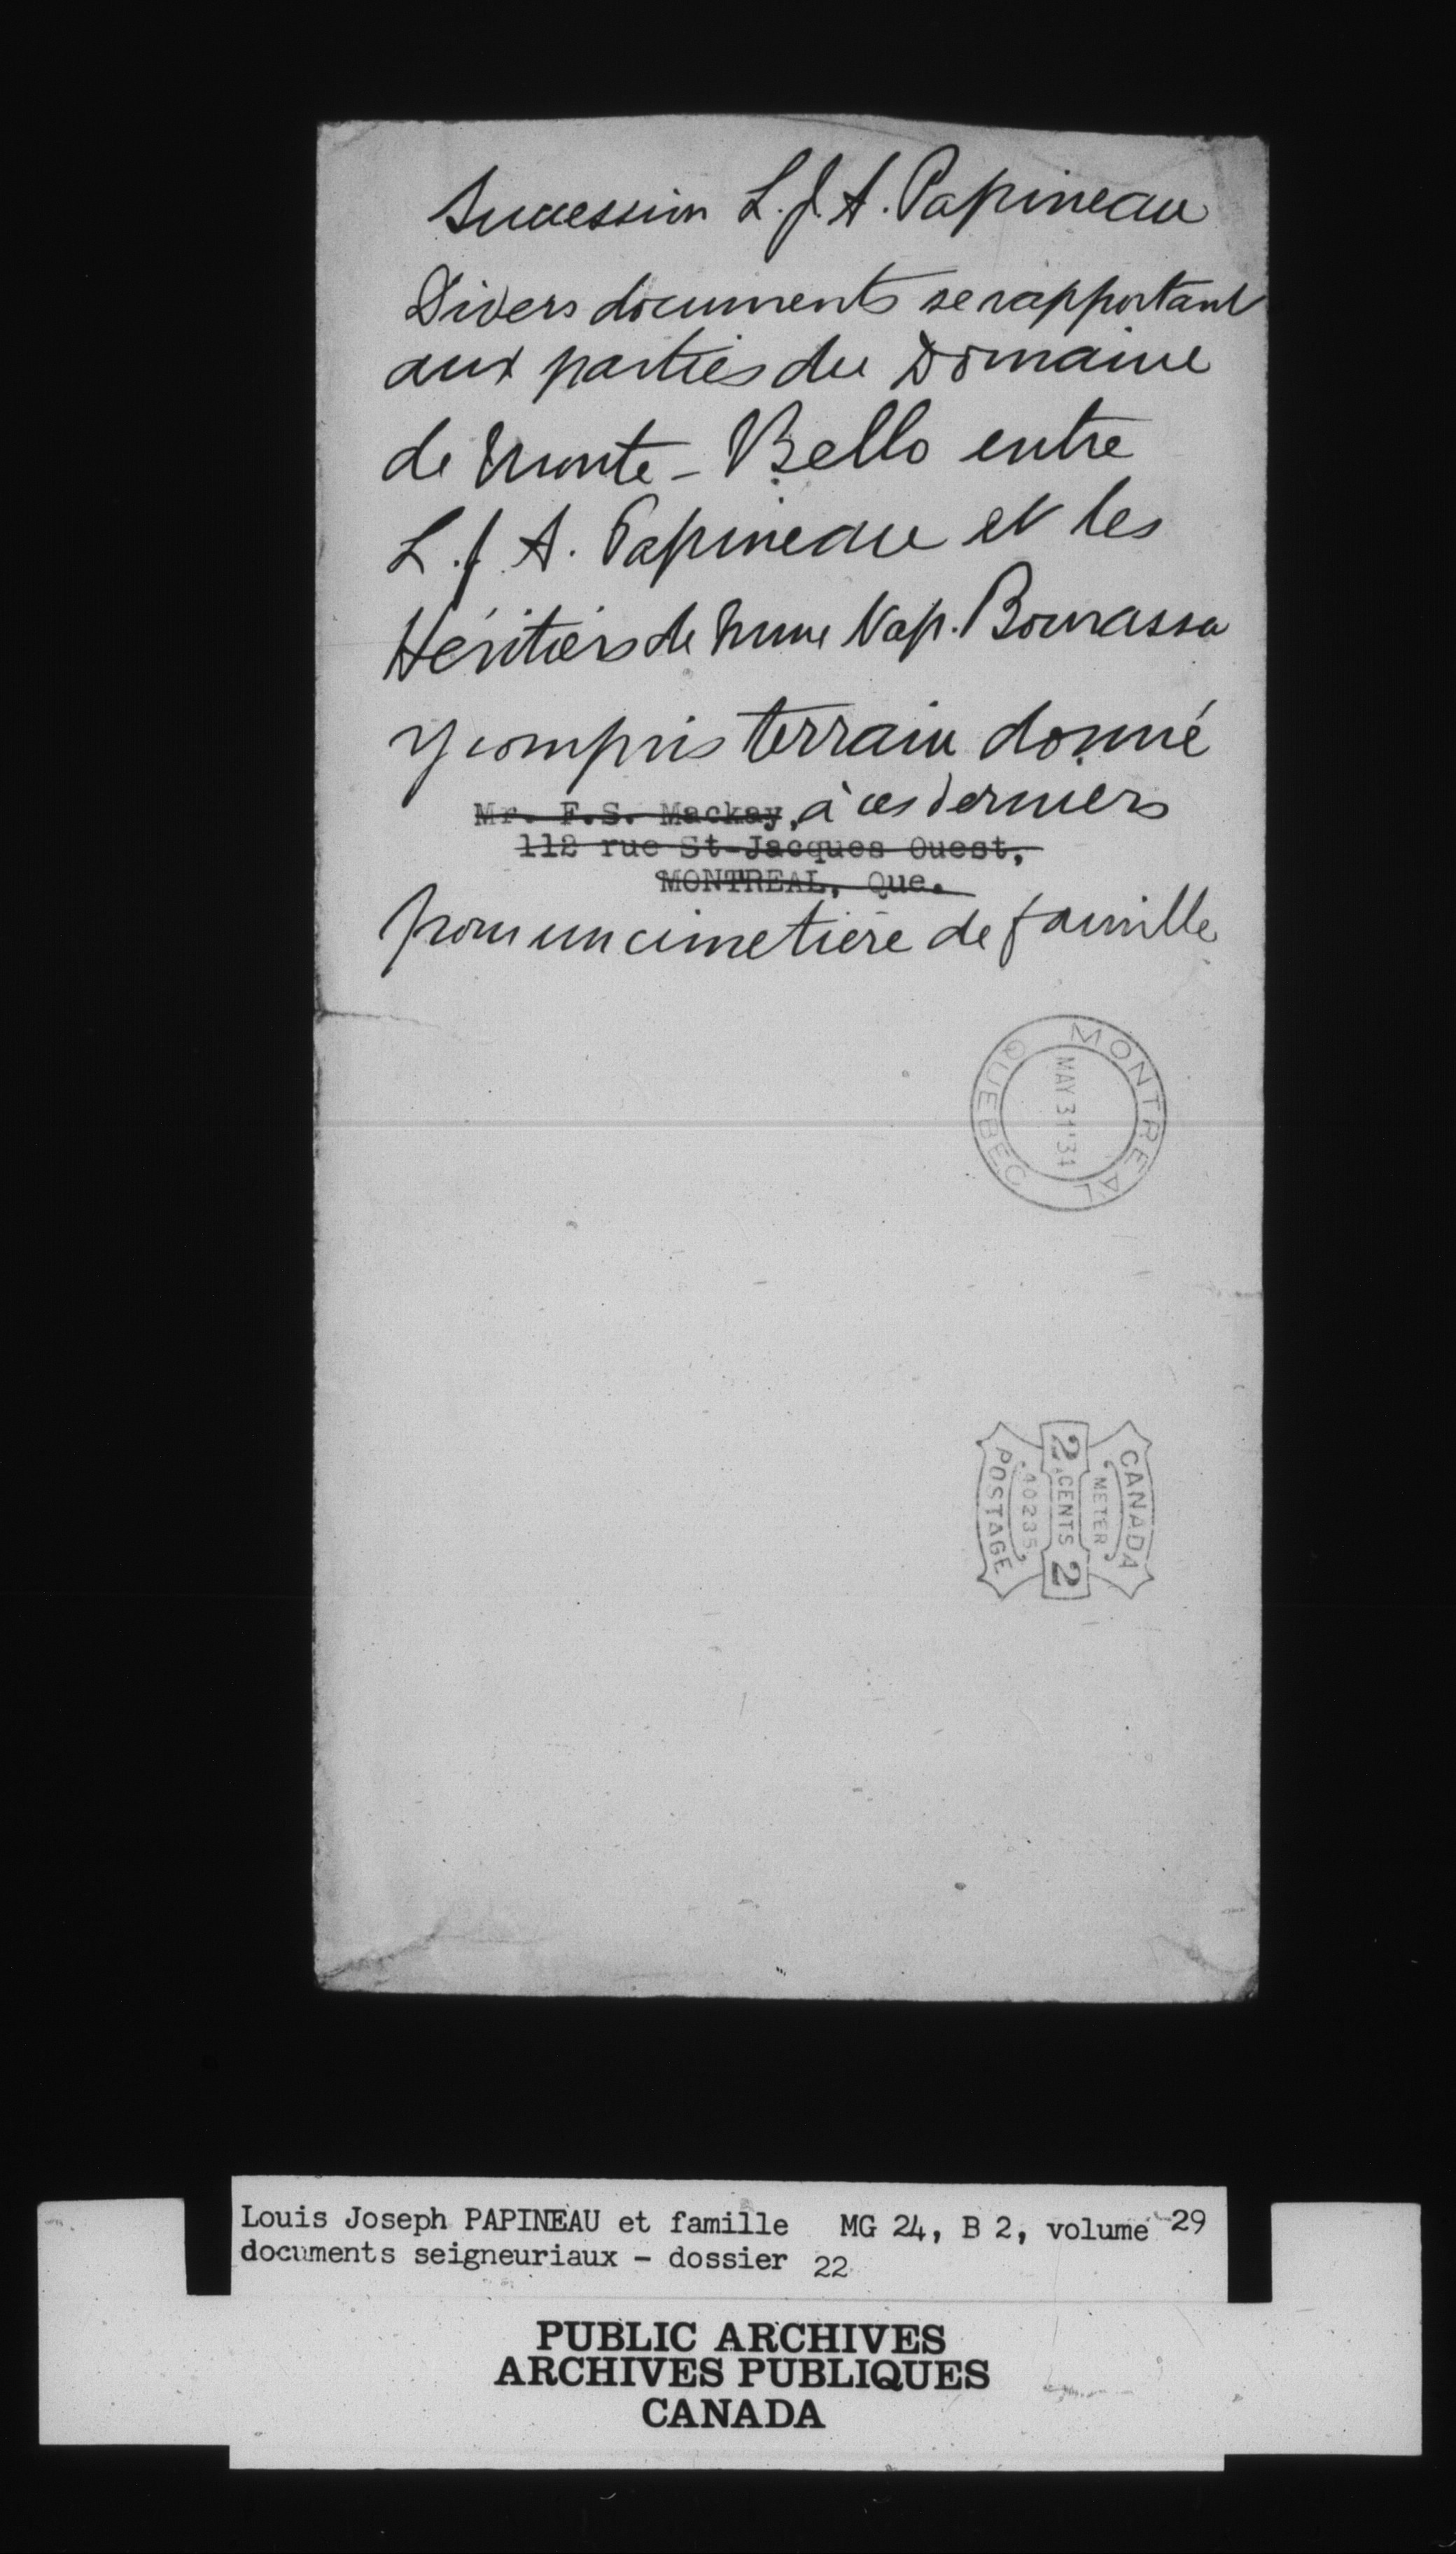 Succession L. J. A. Papineau
Divers documents se rapportant
aux parties du Domaine
de Monte-Bello entre
L. J. A. Papineau et les
Héritiers de Mme Nap. Bourassa
y compris terrain donné
Mr. F.S. Mackay, à ces derniers
112 rue St-Jacques Ouest,
MONTREAL, Que.
pour un cimetière de famille
MONTREAL
MAY 31 '34
QUEBEC
CANADA
METER
2 CENTS 2
POSTAGE
Louis Joseph PAPINEAU et famille MG 24, B 2, volume 29
documents seigneuriaux - dossier 22
PUBLIC ARCHIVES
ARCHIVES PUBLIQUES
CANADA